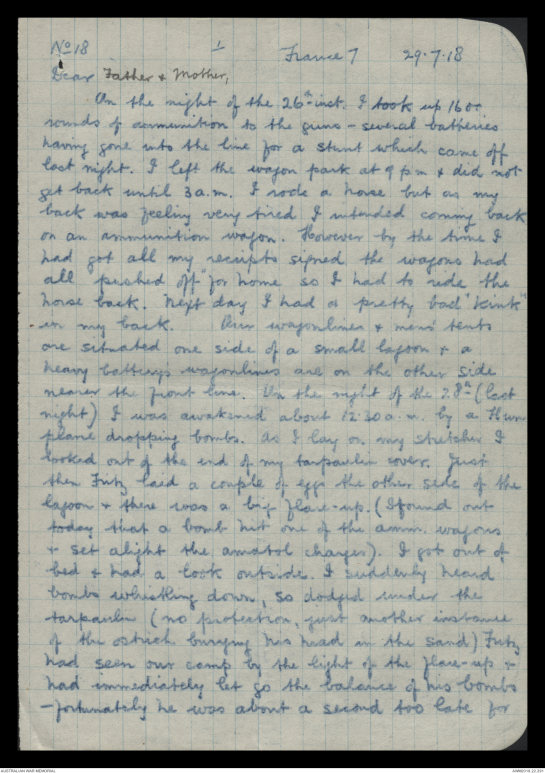 No 18 1 France 7 29.7.18
Dear Father & Mother,
On the night of the 26th inst. I took up 1600
rounds of ammunition to the guns – several batteries
having gone into the line for a stunt which came off
last night. I left the wagon park at 9 pm & did not
get back until 3 a.m. I rode a horse but as my
back was feeling very tired I intended coming back
on an ammunition wagon. However by the time I
had got all my receipts signed the wagons had
all pushed off "for home so I had to ride the
horse back. Next day I had a pretty bad "kink"
in my back. Our wagonlines & mens' tents
are situated one side of a small lagoon & a
heavy battery's wagonlines are on the other side
nearer the front line. On the night of the 28th (last
night) I was awakened about 12.30 a.m. by a Hun
plane dropping bombs. As I lay on my stretcher I
looked out of the end of my tarpaulin cover. Just
then Fritz laid a couple of eggs the other side of the
lagoon & there was a big flare-up. (I found out
today that a bomb hit one of the amm. wagons
& set alight the amatol charges). I got out of
bed & had a look outside. I suddenly heard
bombs whistling down, so dodged under the
tarpaulin (no protection, just another instance
of the ostrich burying his head in the sand) Fritz
had seen our camp by the light of the flare-up &
had immediately let go the balance of his bombs
– fortunately he was about a second too late for
AUSTRALIAN WAR MEMORIAL